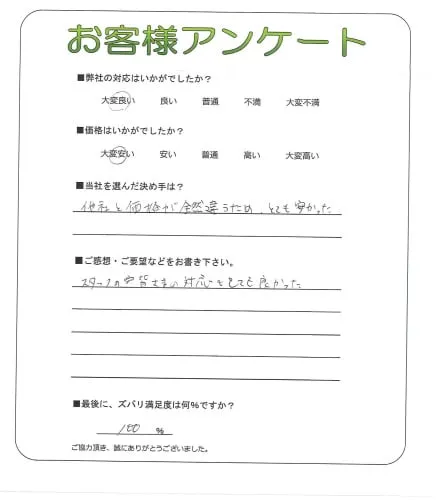 お客様アンケート
■弊社の対応はいかがでしたか？
大変良い 良い 普通 不満 大変不満
■価格はいかがでしたか？
大変安い 安い 普通 高い 大変高い
■当社を選んだ決め手は？
他社と価格が全然違うため、とても安かった
■ご感想・ご要望などをお書き下さい。
スタッフの皆さまの対応もとても良かった
■最後に、ズバリ満足度は何％ですか？
100 ％
ご協力頂き、誠にありがとうございました。